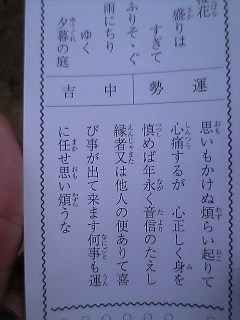 盛りは
すぎて
ふりそゝぐ
雨にちり
ゆく
夕暮の庭
運勢 中吉
思いもかけぬ煩らい起りて
心痛するが 心正しく身を
慎めば年永く音信のたえし
縁者又は他人の便ありて喜
び事が出て来ます何事も運
に任せ思い煩うな